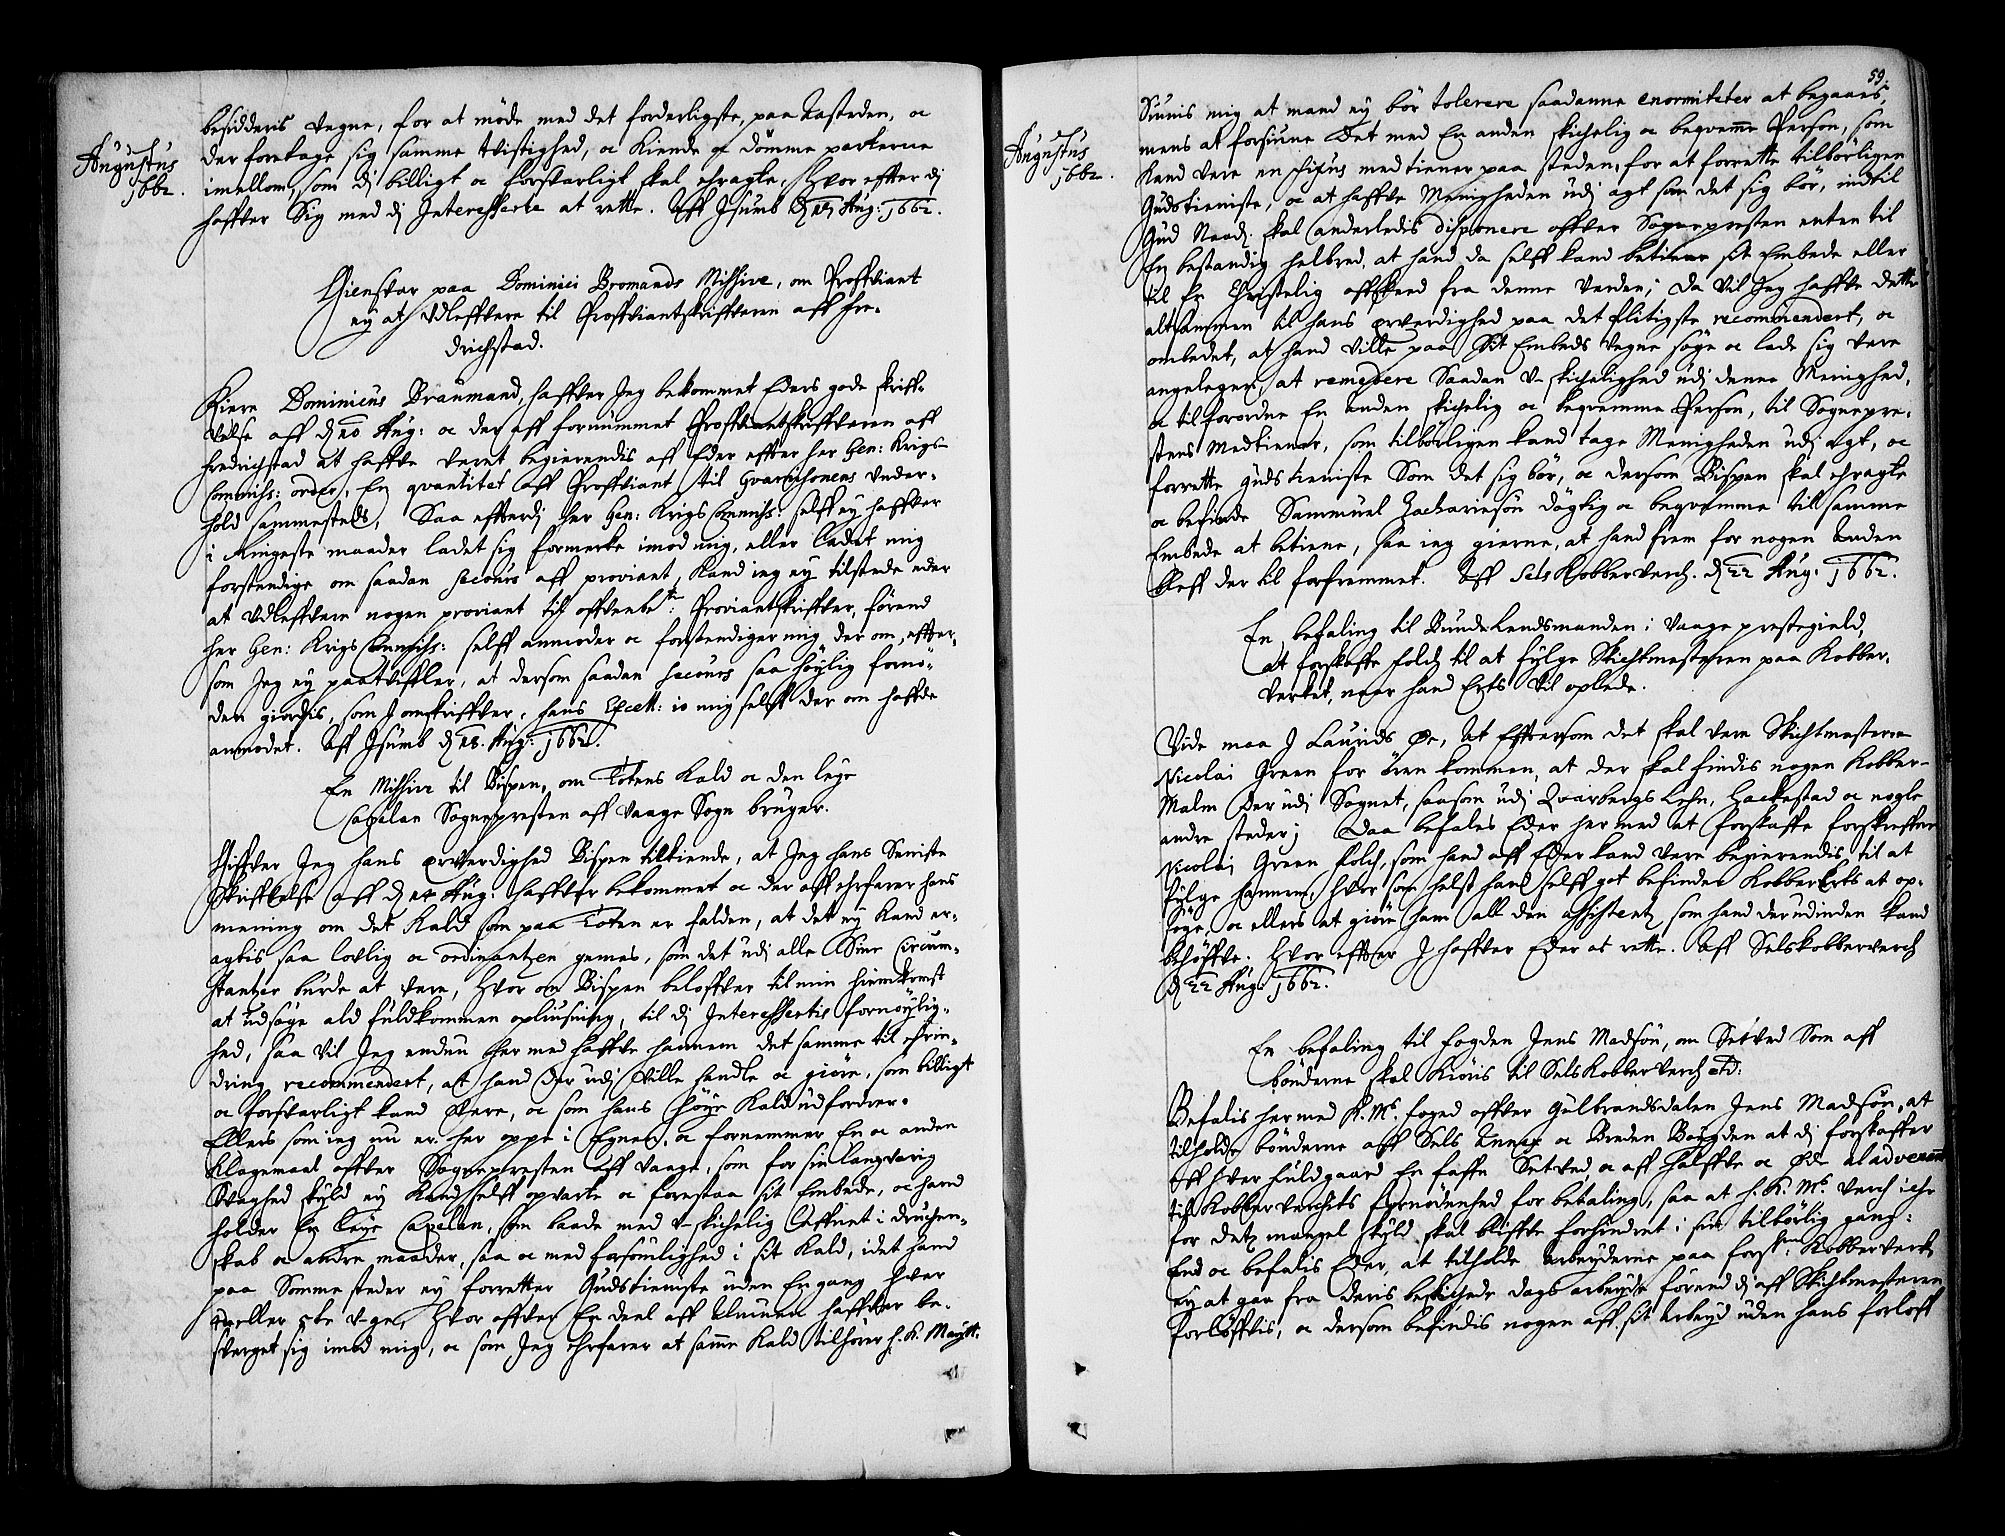 Augustus
1662.
besidderis vegne, for at møde med det forderligste, paa Aasteden, oc
der foretage sig samme tvistighed, oc Kiende oc Domme parterne
imellom, som di billigt oc forsvarligt skal eragte, Hvor effter di
haffver Sig med di Interesserte at rette. Aff Isumb d 18 Aug: 1662.
Giensvar paa Dominici Bromands Missive, om Proffviant
ey at Udleffvere til Proffviantskriffveren aff Fre-
drichstad.
Kiere Dominicus Braumand, haffver Jeg bekommet Eders gode skriff-
velse aff d 10 Aug: oc der aff fornummet Proffviantskriffveren aff
Fredrichstad at haffve veret begierendis aff Eder effter her Gen: Krigs-
Commiss: order, En qvantitet aff Proffviant til Gvarnisonens under-
hold sammesteds, Saa efftterdj her Gen: Krigs Commiss: selff ey haffver
i Ringeste maader ladet sig formerke imod mig, eller ladet mig
forstendige om saadan secours aff proviant, Kand ieg ey tilstede eder
at udleffvere nogen proviant til offvenbete: Proviantskriffver, førend
her Gen: Krigs Commiss: selff anmoder oc forstendiger mig der om, effter-
som Jeg ey paatviffler, at dersom saadan secours saa høylig fornø-
den giordis, som I omskriffver, hans Excell: jo mig selff der om haffde
anmodet. Aff Isumb d 18. Aug: 1662.
En Missive til Bispen, om Totens Kald oc den leye
Capelan Sognepresten aff Vaage Sogn bruger.
Giffver Jeg hans erverdighed Bispen tilkiende, at Jeg hans Seniste
Skriffvelse aff d 14 Aug: haffver bekommet oc der aff erfarer hans
mening om det Kald som paa Toten er falden, at det ey kand er-
agtis saa lovlig oc ordinantzen gemes, som det udi alle Sine Circum-
stantzer burde at vere, Hvor om Bispen beloffver til min hiemkomst
at udsøge ald fuldkommen opliusning, til di Interessertis fornøylig-
hed, saa vil Jeg endnu her med haffve hannem det samme til erin-
dring recommendert, at hand der udi ville handle oc giøre, som billigt
oc forsvarligt kand vere, oc som hans høye Kald udfordrer.
Ellers som ieg nu er her oppe i Egnen, oc fornemmer En oc anden
Klagemaal offver Sognepresten aff Vaage, som for sin langvarig
Svaghed skyld ey kand selff opvarte oc forestaa sit Embede, oc hand
holder En leye Capelan, som baade med u-skichelig Leffnet i druchen-
skab oc andre maader, saa oc med forsømlighed i sit Kald, idet hand
paa Somme steder ey forretter Gudstieniste uden En gang hver
eller 5te uge, Hvor offver En deel aff Almuen haffver be-
sverget sig imod mig, oc som Jeg erfarer at samme Kald tilhører H. K. Maytt:
59.
Augustus
1662.
Siunis mig at mand ey bør tolerere saadanne enormiteter at begaaes,
mens at forsiune Det med En anden skichelig oc beqvemme Person, som
kand vere en medtiener paa steden, for at forrette tilbørligen
Gudstieniste, oc at haffve Menigheden udi agt som det sig bør, indtil
Gud Naadj. skal anderledis disponere offver Sognepresten enten til
En bestandig helbred, at hand da selff kand betiene sit Embede eller
til En Christelig affskeed fra denne Verden; Da vil Jeg haffve dette
altsammen til hans erverdighed paa det flitigste recommendert, oc
ombedet, at hand ville paa Sit Embeds vegne søge oc lade sig vere
angelegen, at remedere Saadan u-skichelighed udi denne Menighed,
oc tilforordne En anden skichelig oc beqvemme Person, til Sognepre-
stens Medtiener, som tilbørligen kand tage Menigheden udi agt, oc
forrette Gudstieniste Som det sig bør, oc dersom Bispen skal eragte
oc befinde Sammuel Zachariesøn døgtig oc beqvemme till samme
Embede at betiene, saa ieg gierne, at hand frem for nogen anden
bleff der til forfremmet. Aff Sels Kobberverch. d 22 Aug: 1662.
En befaling til Bunde Lendsmanden i Vaage prestegield,
at forskaffe folch til at fylge Skichtmesteren paa Kobber-
verket, naar hand Erts vil oplede.
Vide maa I Laurids Øe, At Efftersom det skal vere Skichtmesteren
Nicolai Green for ören kommen, at der skal findis nogen Kobber-
Malm der udi Sognet, saasom udi Qvarbergs Lehn, Hackestad oc nogle
andre steder; Daa befales Eder her med at forskaffe forskreffne
Nicolai Green folch, som hand aff Eder kand vere begierendis til at
fylge hannem, hvor som helst hand selff got befinder Kobber Erts at op-
søge, oc ellers at giøre ham all den assistentz, som hand der udinden kand
behøffve. Hvor effter I haffver Eder at rette. Aff Selskobberverch
d 22 Aug: 1662.
En befaling til fogden Jens Madsøn, om Setved Som aff
bønderne skal kiøris til Sels Kobber Verch etc:
Befalis her med K. Ms. foged offver Gulbrandsdalen Jens Madsøn, at
tilholde bønderne aff Sels Annex oc Breden Bøygden at di forskaffer
aff hver fuldgaard En faffn Setved, oc aff halffve oc Øde al advenant
til Kobber verchets fornødenhed for betaling, saa at H. K. Ms. Verch icke
for detz mangel skyld skal bliffve forhindret i sin tilbørlig gang:
End oc befalis Eder, at tilholde arbeyderne paa forskne Kobberverch
ey at gaa fra deris beskichede dags arbeyde førend di aff Skichtmesteren
forløffvis, oc dersom befindis nogen aff sit arbeyd uden hans forloff